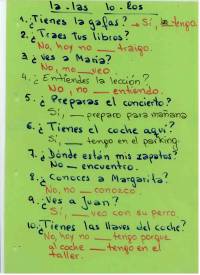 la - las   lo - los
1. ¿Tienes la gafas? → Sí, la tengo.
2. ¿Traes tus libros?
No, hoy no ___ traigo.
3. ¿Ves a María?
No, no ___ veo.
4. ¿Entiendes la lección?
No, no ___ entiendo.
5. ¿Preparas el concierto?
Sí, ___ preparo para mañana
6. ¿Tienes el coche aquí?
Sí, ___ tengo en el parking.
7. ¿Dónde están mis zapatos?
No ___ encuentro.
8. ¿Conoces a Margarita?
No, no ___ conozco.
9. ¿Ves a Juan?
Sí, ___ veo con su perro.
10. ¿Tienes las llaves del coche?
No, hoy no ___ tengo porque
el coche ___ tengo en el
taller.